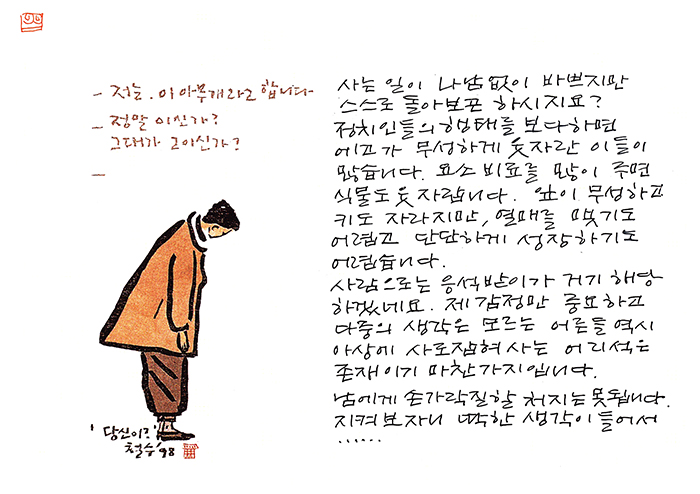 - 저는. 이 아무개라고 합니다
- 정말 이신가?
그대가 그이신가?
-
'당신이?'
철수 '98
사는 일이 나남없이 바쁘지만
스스로 돌아보곤 하시지요?
정치인들의 행태를 보다하면
에고가 무성하게 웃자란 이들이
많습니다. 요소비료를 많이 주면
식물도 웃자랍니다. 잎이 무성하고
키도 자라지만, 열매를 맺기도
어렵고 단단하게 성장하기도
어렵습니다.
사람으로는 응석받이가 거기 해당
하겠네요. 제 감정만 중요하고
다중의 생각은 모르는 어른들 역시
아상에 사로잡혀 사는 어리석은
존재이기 마찬가지입니다.
남에게 손가락질할 처지는 못됩니다.
지켜보자니 딱한 생각이 들어서
......